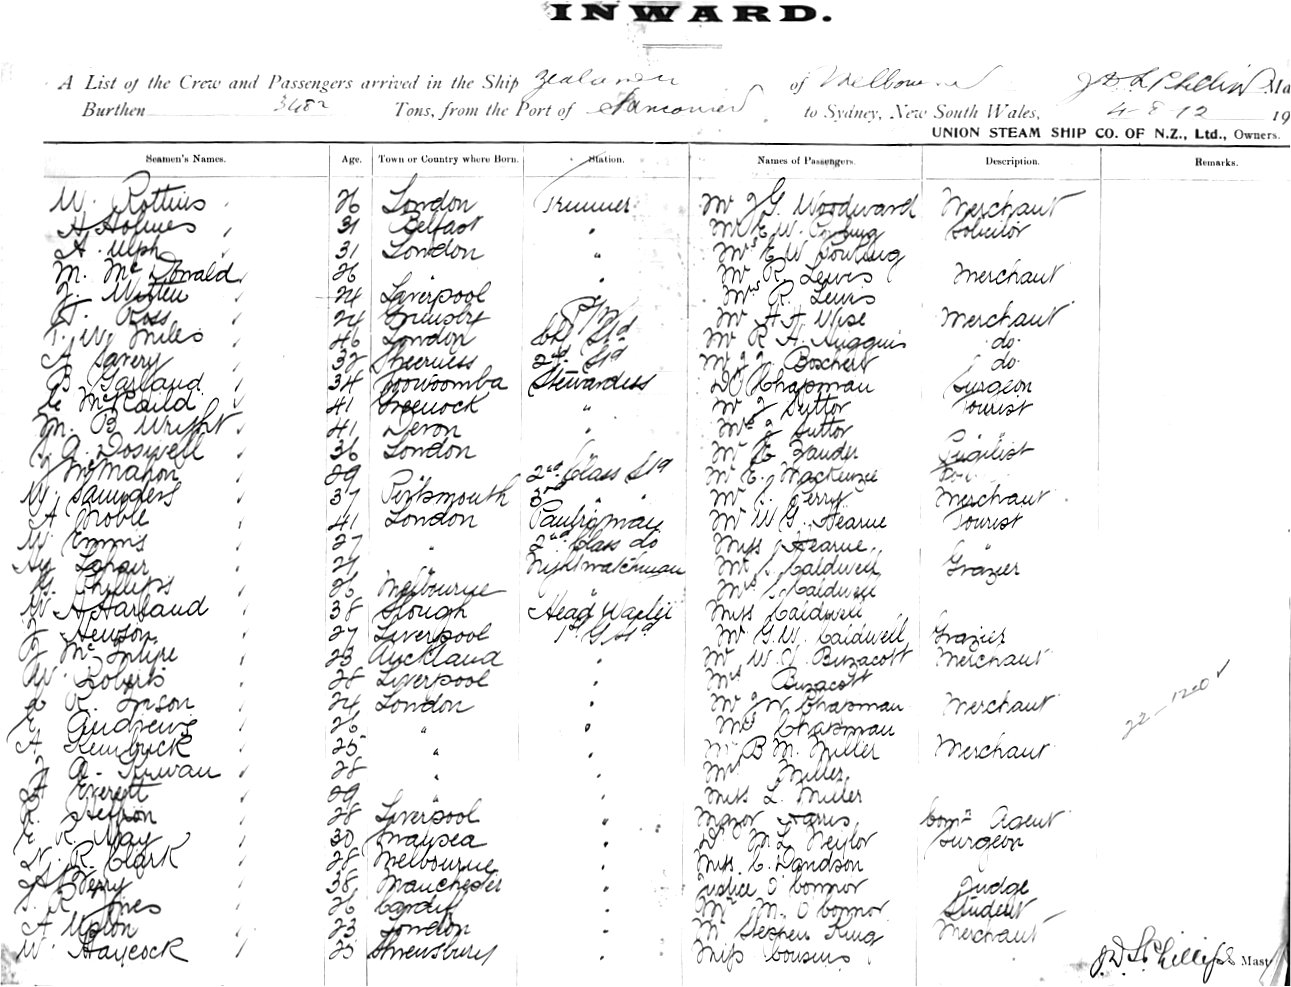 INWARD.
A List of the Crew and Passengers arrived in the Ship Zealandia of Melbourne J D S Phillips Ma
Burthen 3482 Tons, from the Port of Vancouver to Sydney, New South Wales, 4-8-12 19
UNION STEAM SHIP CO. OF N.Z., Ltd., Owners.
Seamen's Names. Age. Town or Country where Born. Station. Names of Passengers. Description. Remarks.
W. 26 London Trimmer Mr J G Woodward Merchant
H Holmes 31 Belfast " Mr E. W. Solicitor
A. Ulph 31 London " Mrs E W
M. McDonald 26 " " Mr R. Lewis Merchant
J. 24 Liverpool Mrs R. Lewis
Ross 24 Grimsby Mr H H Wise Merchant
W. Miles 46 London Std Mr R A Huggins do.
A Savery 32 Sheerness 2nd Std Mr J J Boschert do.
B Garland 34 Toowoomba Stewardess Dr Chapman Surgeon
McCaild 41 Greenock " Mr J Suttor Tourist
M. B Wright 41 Devon " Mrs J Suttor
J A. Doswell 36 London Mr E Zander Pugilist
J McMahon 29 " 2nd Class Std Mr E. Mackenzie Do.
W. Saunders 37 Portsmouth 3rd " " Mr Perry Merchant
A Noble 41 London Pantryman Mr W G. Hearne Tourist
W. Emms 27 " 2nd Class do Miss Hearne "
Hy 27 " Nightwatchman Mr Caldwell Grazier
Phillips 26 Melbourne " Mrs Caldwell
W. A Harland 38 Slough Head Waiter Miss Caldwell
J Hewson 27 Liverpool 1st Mr G. W. Caldwell Grazier
J McIntyre 23 Auckland " Mr W J Buzacott Merchant
W. Roberts 28 Liverpool " Mrs Buzacott
R. Inson 24 London " Mr J W Chapman Merchant
E. Andrews 26 " " Mrs Chapman
A Kembrick 25 " " Mr B M. Miller Merchant 22 - 1200
J A. Kirwan 28 " " Mrs Miller
H Everett 29 " " Miss L Miller
R. Heffron 28 Liverpool " Major Harris Comn Agent
E R. May 30 Swansea " Dr M L Neylor Surgeon
N. R. Clark 28 Melbourne " Miss C. Davidson
Berry 38 Manchester " Justice O'Connor Judge
R. Jones 26 Cardiff " Mr M. O'Connor Student
A Upton 23 London " Mr Stephen King Merchant
W. Haycock 25 Shrewsbury " Miss Cousins
J. D. S. Phillips Mast